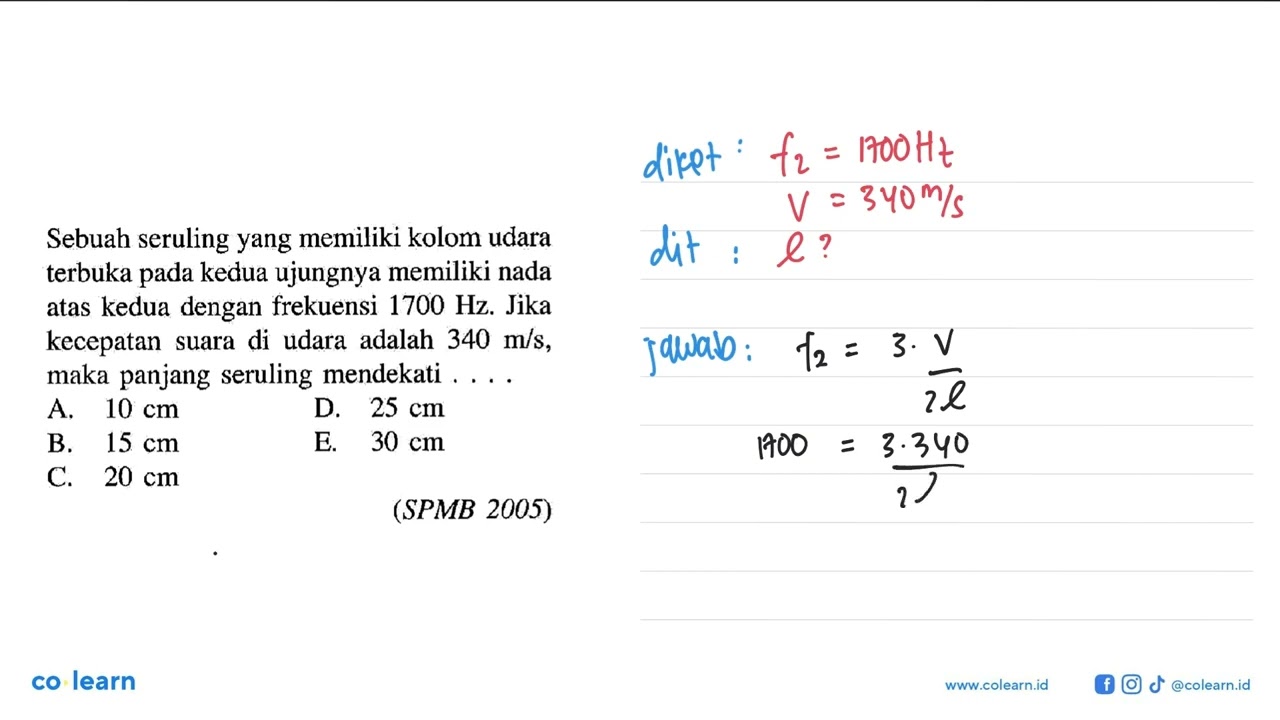 Sebuah seruling yang memiliki kolom udara
terbuka pada kedua ujungnya memiliki nada
atas kedua dengan frekuensi 1700 Hz. Jika
kecepatan suara di udara adalah 340 m/s,
maka panjang seruling mendekati . . . .
A. 10 cm D. 25 cm
B. 15 cm E. 30 cm
C. 20 cm
(SPMB 2005)
diket : f₂ = 1700 Hz
V = 340 m/s
dit : l ?
jawab : f₂ = 3 . V
2l
1700 = 3 . 340
2
co learn
www.colearn.id @colearn.id